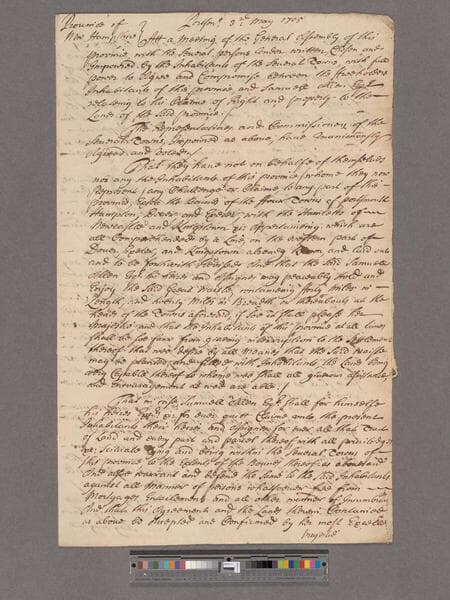 Province of
New Hampshire } Portsmo 3d. May 1705
Att a Meeting of the General Assembly of this
province, with the several persons under written Chosen and
Impowred by the Inhabitants of the Several Towns, with full
power to Agree and Compromise between the freeholders
Inhabitants of this province and Samuell Allen Esqr
relateing to his Claime of Right and property to the
Lands of the said Province.
The Representatives and Commissioners of the
Severall Towns, Impowred as above, have Unanimously
Agreed and Voted
That they have not on behalfe of themselves
nor any the Inhabitants of this province whome they now
represent, any Challenge or Claime to any part of this
province, Extra the bounds of the four Towns of portsmouth
Hampton, Dover and Exeter, with the Hamletts of
Newcastle and Kingstown &c Appertaining; which are
all Comprehended by a Line, on the western part of
Dover, Exeter, and Kingstown already known and laid out
and to be forthwith And that the said Samuell
Allen Esqr his heirs and assignes may peaceably hold and
Enjoy the said Great Waste, containeing forty Miles in
Length, and twenty Miles in Breadth, or thereabouts at the
heads of the Towns aforesaid, if soe it shall please her
Majestie and that the Inhabitants of this province at all times
shall be soe farr from giveing interruption to the Settlement
thereof that they desire by all Meanes that the said waste
may be planted and filled with Inhabitants, the Land being
very Capable thereof to whome wee shall all give our assistance
and Encouragement as wee are able
That in case Samuell Allen Esqr shall for himselfe
his heires for ever quitt Claime unto the present
Inhabitants their heires and assignes for ever all that tract
of Land and every part and parcel thereof with all priviledges
&c Scituate lying and being within the Several Towns of
this province to the Extent of the bounds thereof as abovesaid
And alsoe warrant and defend the same to the said Inhabitants
against all manner of persons whatsoever free from
Mortgages, Entailements and all other manner of Incumbrances
And that this Agreement and the Lands therein Contained
as above be Accepted and Confirmed by her most Excellent
Majestie